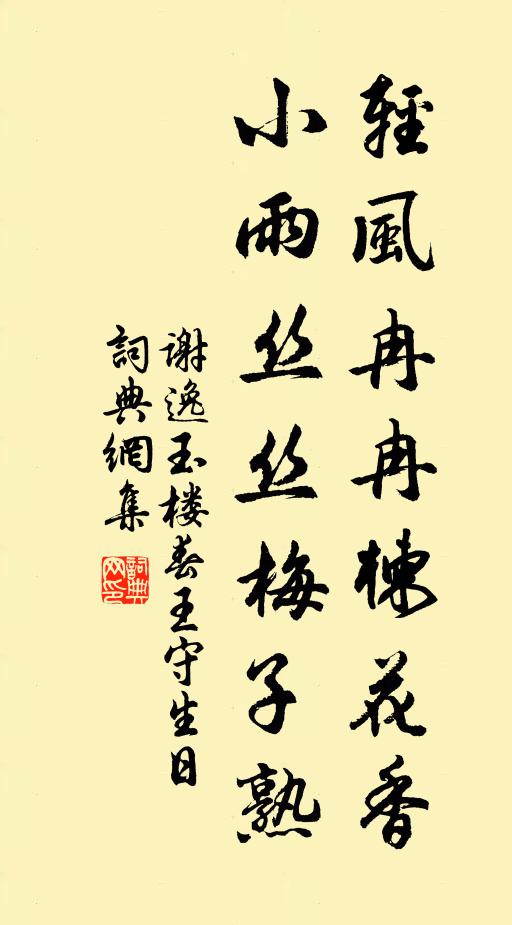 輕風冉冉楝花香
小雨丝丝梅子熟
谢逸玉楼春王守生日
詞典網集
詞典网印